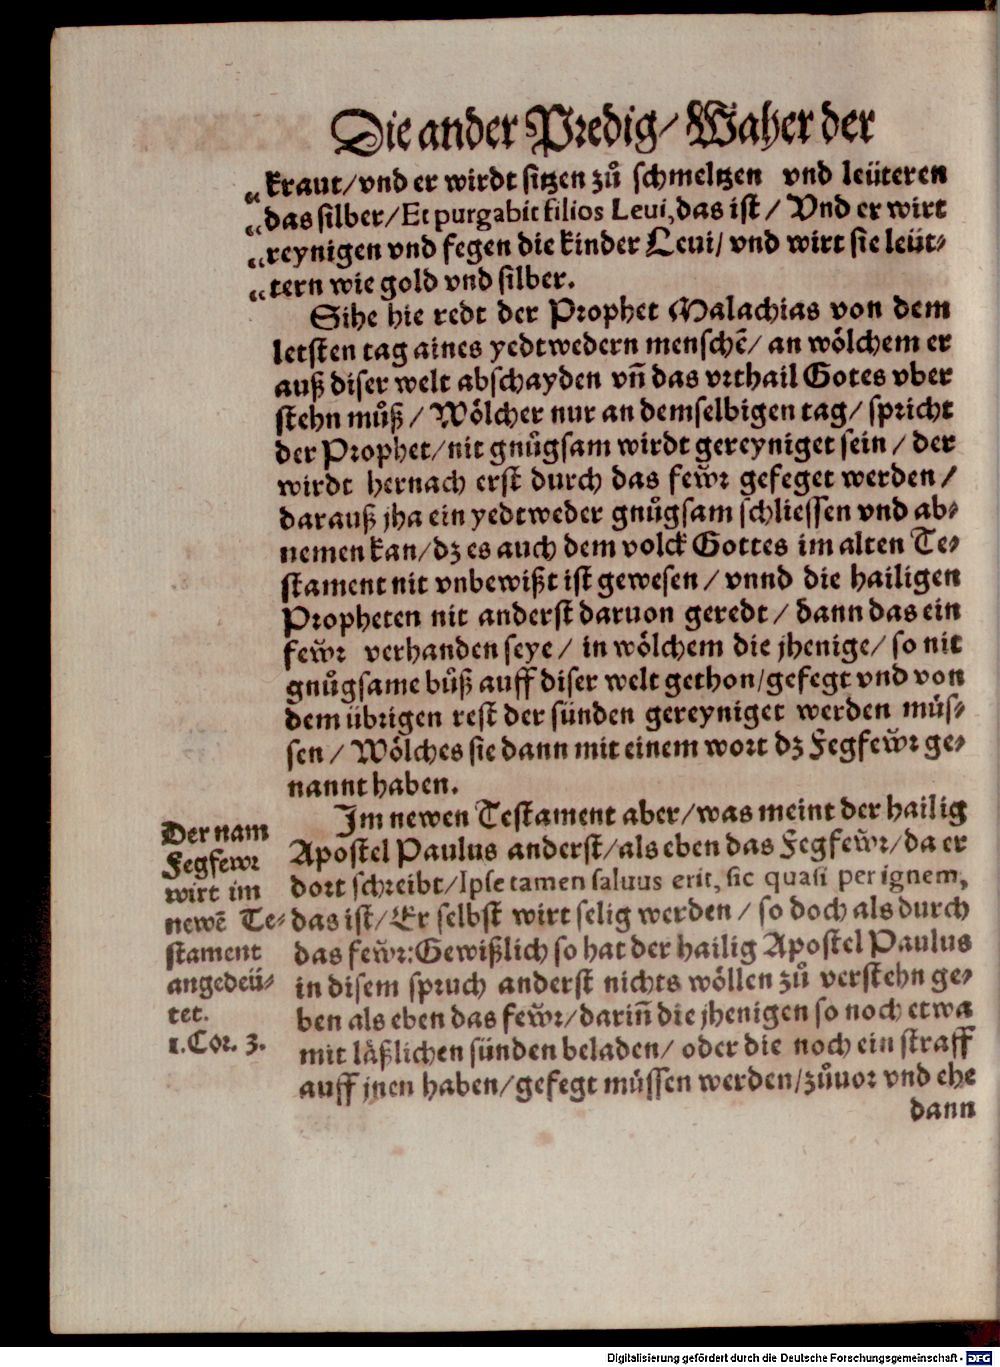 Die ander Predig/ Waher der
„kraut/vnd er wirdt sitzen zů schmeltzen vnd leüteren
„das silber/Et purgabit filios Leui, das ist/ Vnd er wirt
„reynigen vnd fegen die kinder Leui/ vnd wirt sie leüt-
„tern wie gold vnd silber.
Sihe hie redt der Prophet Malachias von dem
letsten tag aines yedtwedern menschẽ/ an wölchem er
auß diser welt abschayden vñ das vrthail Gotes vber
stehn můß/ Wölcher nur an demselbigen tag/ spricht
der Prophet/ nit gnůgsam wirdt gereyniget sein/ der
wirdt hernach erst durch das feẘr gefeget werden/
darauß jha ein yedtweder gnůgsam schliessen vnd ab-
nemen kan/dz es auch dem volck Gottes im alten Te-
stament nit vnbewißt ist gewesen/ vnnd die hailigen
Propheten nit anderst daruon geredt/ dann das ein
feẘr verhanden seye/ in wölchem die jhenige/ so nit
gnůgsame bůß auff diser welt gethon/gefegt vnd von
dem übrigen rest der sünden gereyniget werden müs-
sen/ Wölches sie dann mit einem wort dz Fegfeẘr ge-
nannt haben.
Im newen Testament aber/was meint der hailig
Apostel Paulus anderst/als eben das Fegfeẘr/da er
dort schreibt/Ipse tamen saluus erit, sic quasi per ignem,
das ist/Er selbst wirt selig werden/ so doch als durch
das feẘr: Gewißlich so hat der hailig Apostel Paulus
in disem spruch anderst nichts wöllen zů verstehn ge-
ben als eben das feẘr/dariñ die jhenigen so noch etwa
mit läßlichen sünden beladen/ oder die noch ein straff
auff jnen haben/gefegt müssen werden/zůuor vnd ehe
dann
Der nam
Fegfewr
wirt im
newẽ Te-
stament
angedeü-
tet.
1.Cor. 3.
Digitalisierung gefördert durch die Deutsche Forschungsgemeinschaft - DFG